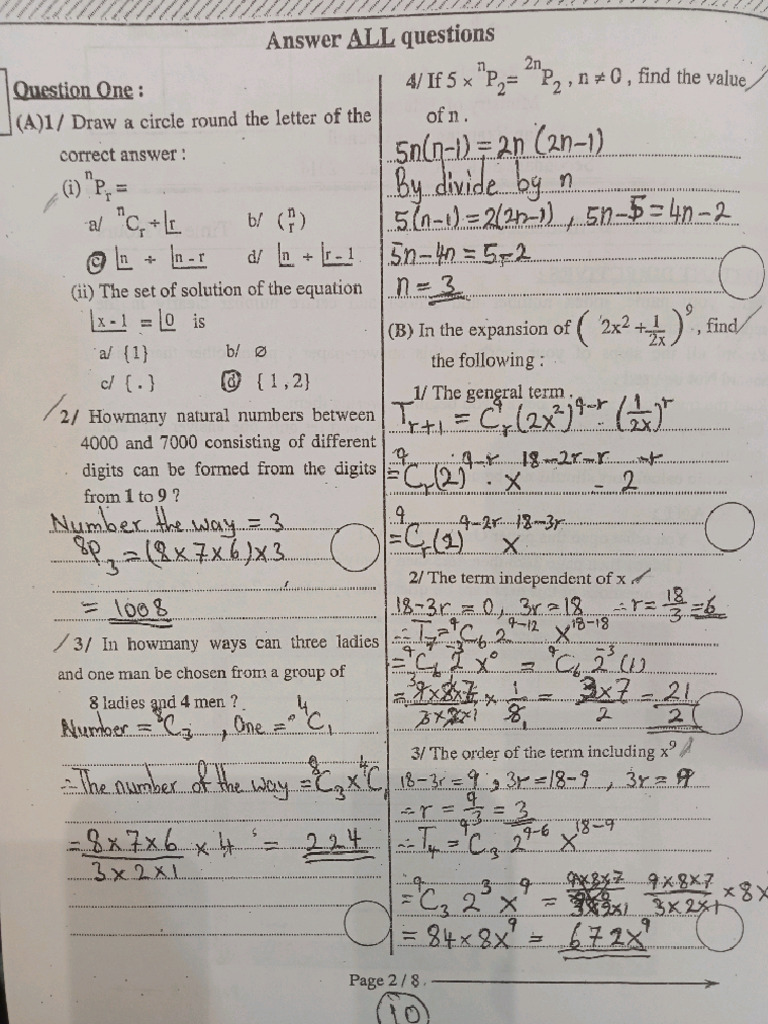 Answer ALL questions
Question One :
(A)1/ Draw a circle round the letter of the
correct answer :
(i) ⁿPᵣ =
a/ ⁿCᵣ ÷ |r b/ (ⁿᵣ)
c |n ÷ |n - r d/ |n ÷ |r - 1
(ii) The set of solution of the equation
|x - 1 = |0 is
a/ {1} b/ ∅
c/ { . } d { 1 , 2}
2/ Howmany natural numbers between
4000 and 7000 consisting of different
digits can be formed from the digits
from 1 to 9 ?
Number the way = 3
8P₃ = (8×7×6)×3
= 1008
3/ In howmany ways can three ladies
and one man be chosen from a group of
8 ladies and 4 men ?
Number = ⁸C₃ , One = ⁴C₁
∴ The number of the way = ⁸C₃ × ⁴C₁
= 8×7×6 / 3×2×1 × 4 = 224
4/ If 5 × ⁿP₂ = ²ⁿP₂ , n ≠ 0 , find the value
of n .
5n(n-1) = 2n (2n-1)
By divide by n
5(n-1) = 2(2n-1) , 5n-5 = 4n-2
5n-4n = 5-2
n = 3
(B) In the expansion of ( 2x² + 1/2x )⁹ , find
the following :
1/ The general term .
Tr+1 = ⁹Cr (2x²)^9-r · (1/2x)^r
= ⁹Cr (2)^9-r · x^18-2r-r · 2^-r
= ⁹Cr (2)^9-2r x^18-3r
2/ The term independent of x
18-3r = 0 , 3r = 18 ∴ r = 18/3 = 6
∴ T₇ = ⁹C₆ 2^9-12 x^18-18
= ⁹C₆ 2^-3 x⁰ = ⁹C₆ 2^-3 (1)
= 9×8×7 / 3×2×1 × 1/8 = 3×7 / 2 = 21/2
3/ The order of the term including x⁹
18-3r = 9 , 3r = 18-9 , 3r = 9
∴ r = 9/3 = 3
∴ T₄ = ⁹C₃ 2^9-6 x^18-9
= ⁹C₃ 2³ x⁹ = 9×8×7 / 3×2×1 × 8x
= 84 × 8x⁹ = 672x⁹
Page 2 / 8 .
10